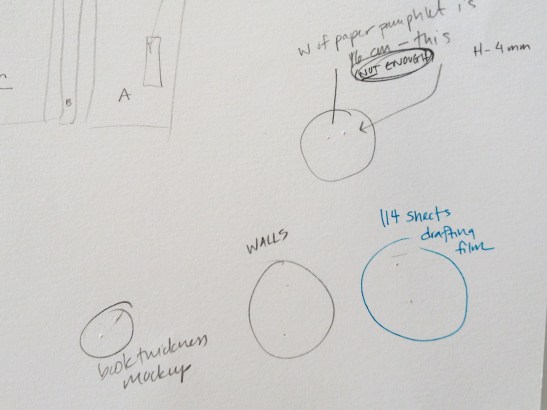 W of paper pamphlet is
16 cm - this
NOT ENOUGH
H - 4 mm
A
B
114 sheets
drafting
film
WALLS
book thickness
mockup